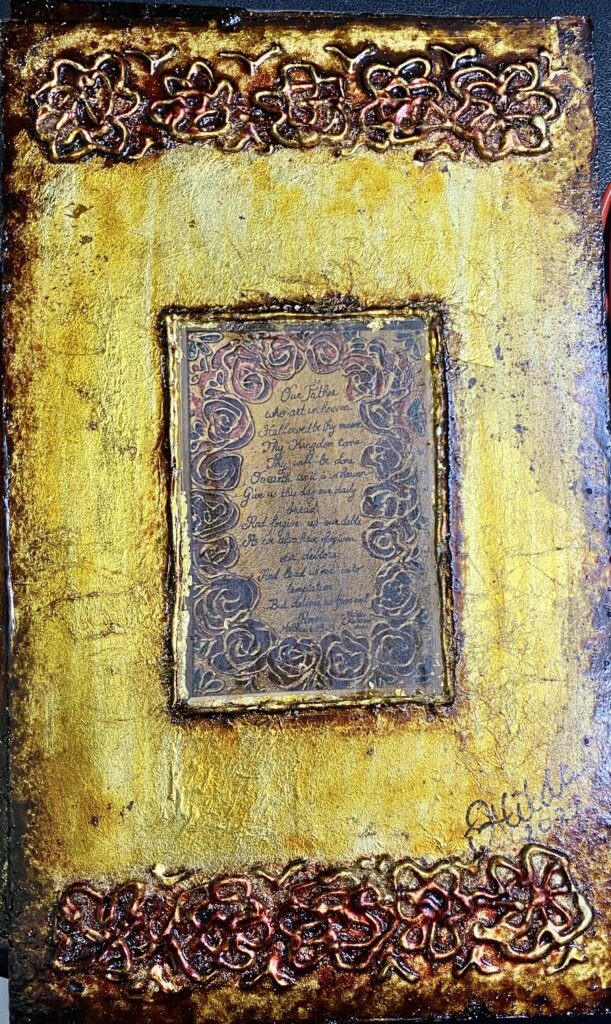 Our Father
who art in heaven
Hallowed be thy name
Thy Kingdom Come
Thy will be done
On earth as it is in heaven
Give us this day our daily
bread
And forgive us our debts
As we also have forgiven
our debtors
And lead us not into
temptation
But deliver us from evil
Hilda